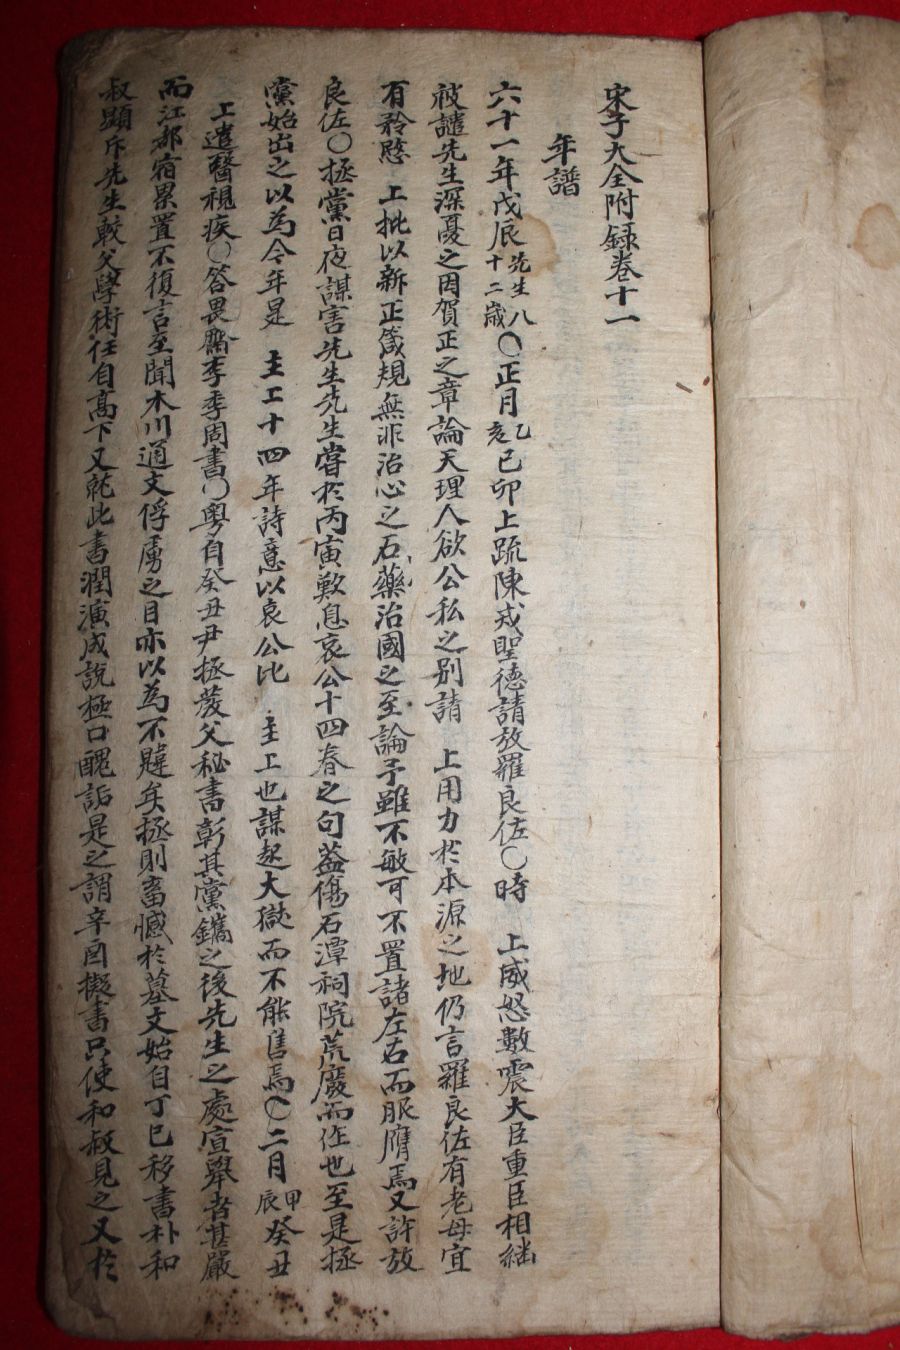 宋子大全附録卷十一
年譜
六十一年戊辰先生八十二歲○正月乙亥己卯上疏陳戎聖德請放羅良佐○時 上威怒數震大臣重臣相繼
被譴先生深憂之因賀正之章論天理人欲公私之别請 上用力於本源之地仍言羅良佐有老母宜
有矜愍 上批以新正箴規無非治心之石藥治國之至論予雖不敏可不置諸左右而服膺焉又許放
良佐○拯黨日夜謀害先生先生嘗於丙寅歎息哀公十四春之句蓋傷石潭祠院荒廢而作也至是拯
黨始出之以為今年是 主上十四年詩意以哀公比 主上也謀起大獄而不能售焉○二月甲辰癸丑
上遣醫視疾○答畏齋李季周書○粤自癸丑尹拯發父秘書彰其黨鑴之後先生之處宣舉者甚嚴
而江都宿累置不復言至聞木川通文俘虜之目亦以為不韙矣拯則畜憾於墓文始自丁巳移書朴和
叔顯斥先生較父學術任自高下又就此書潤演成說極口醜詬是之謂辛酉擬書只使和叔見之又於